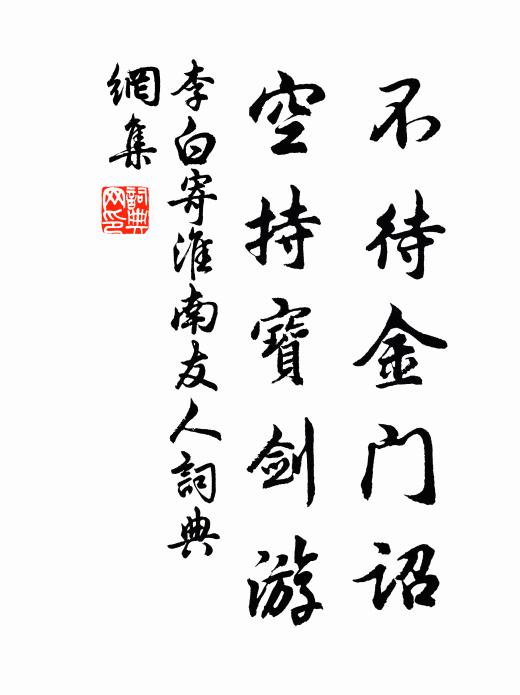 不待金门诏
空持寶剑游
李白寄淮南友人詞典
網集
詞典
网印